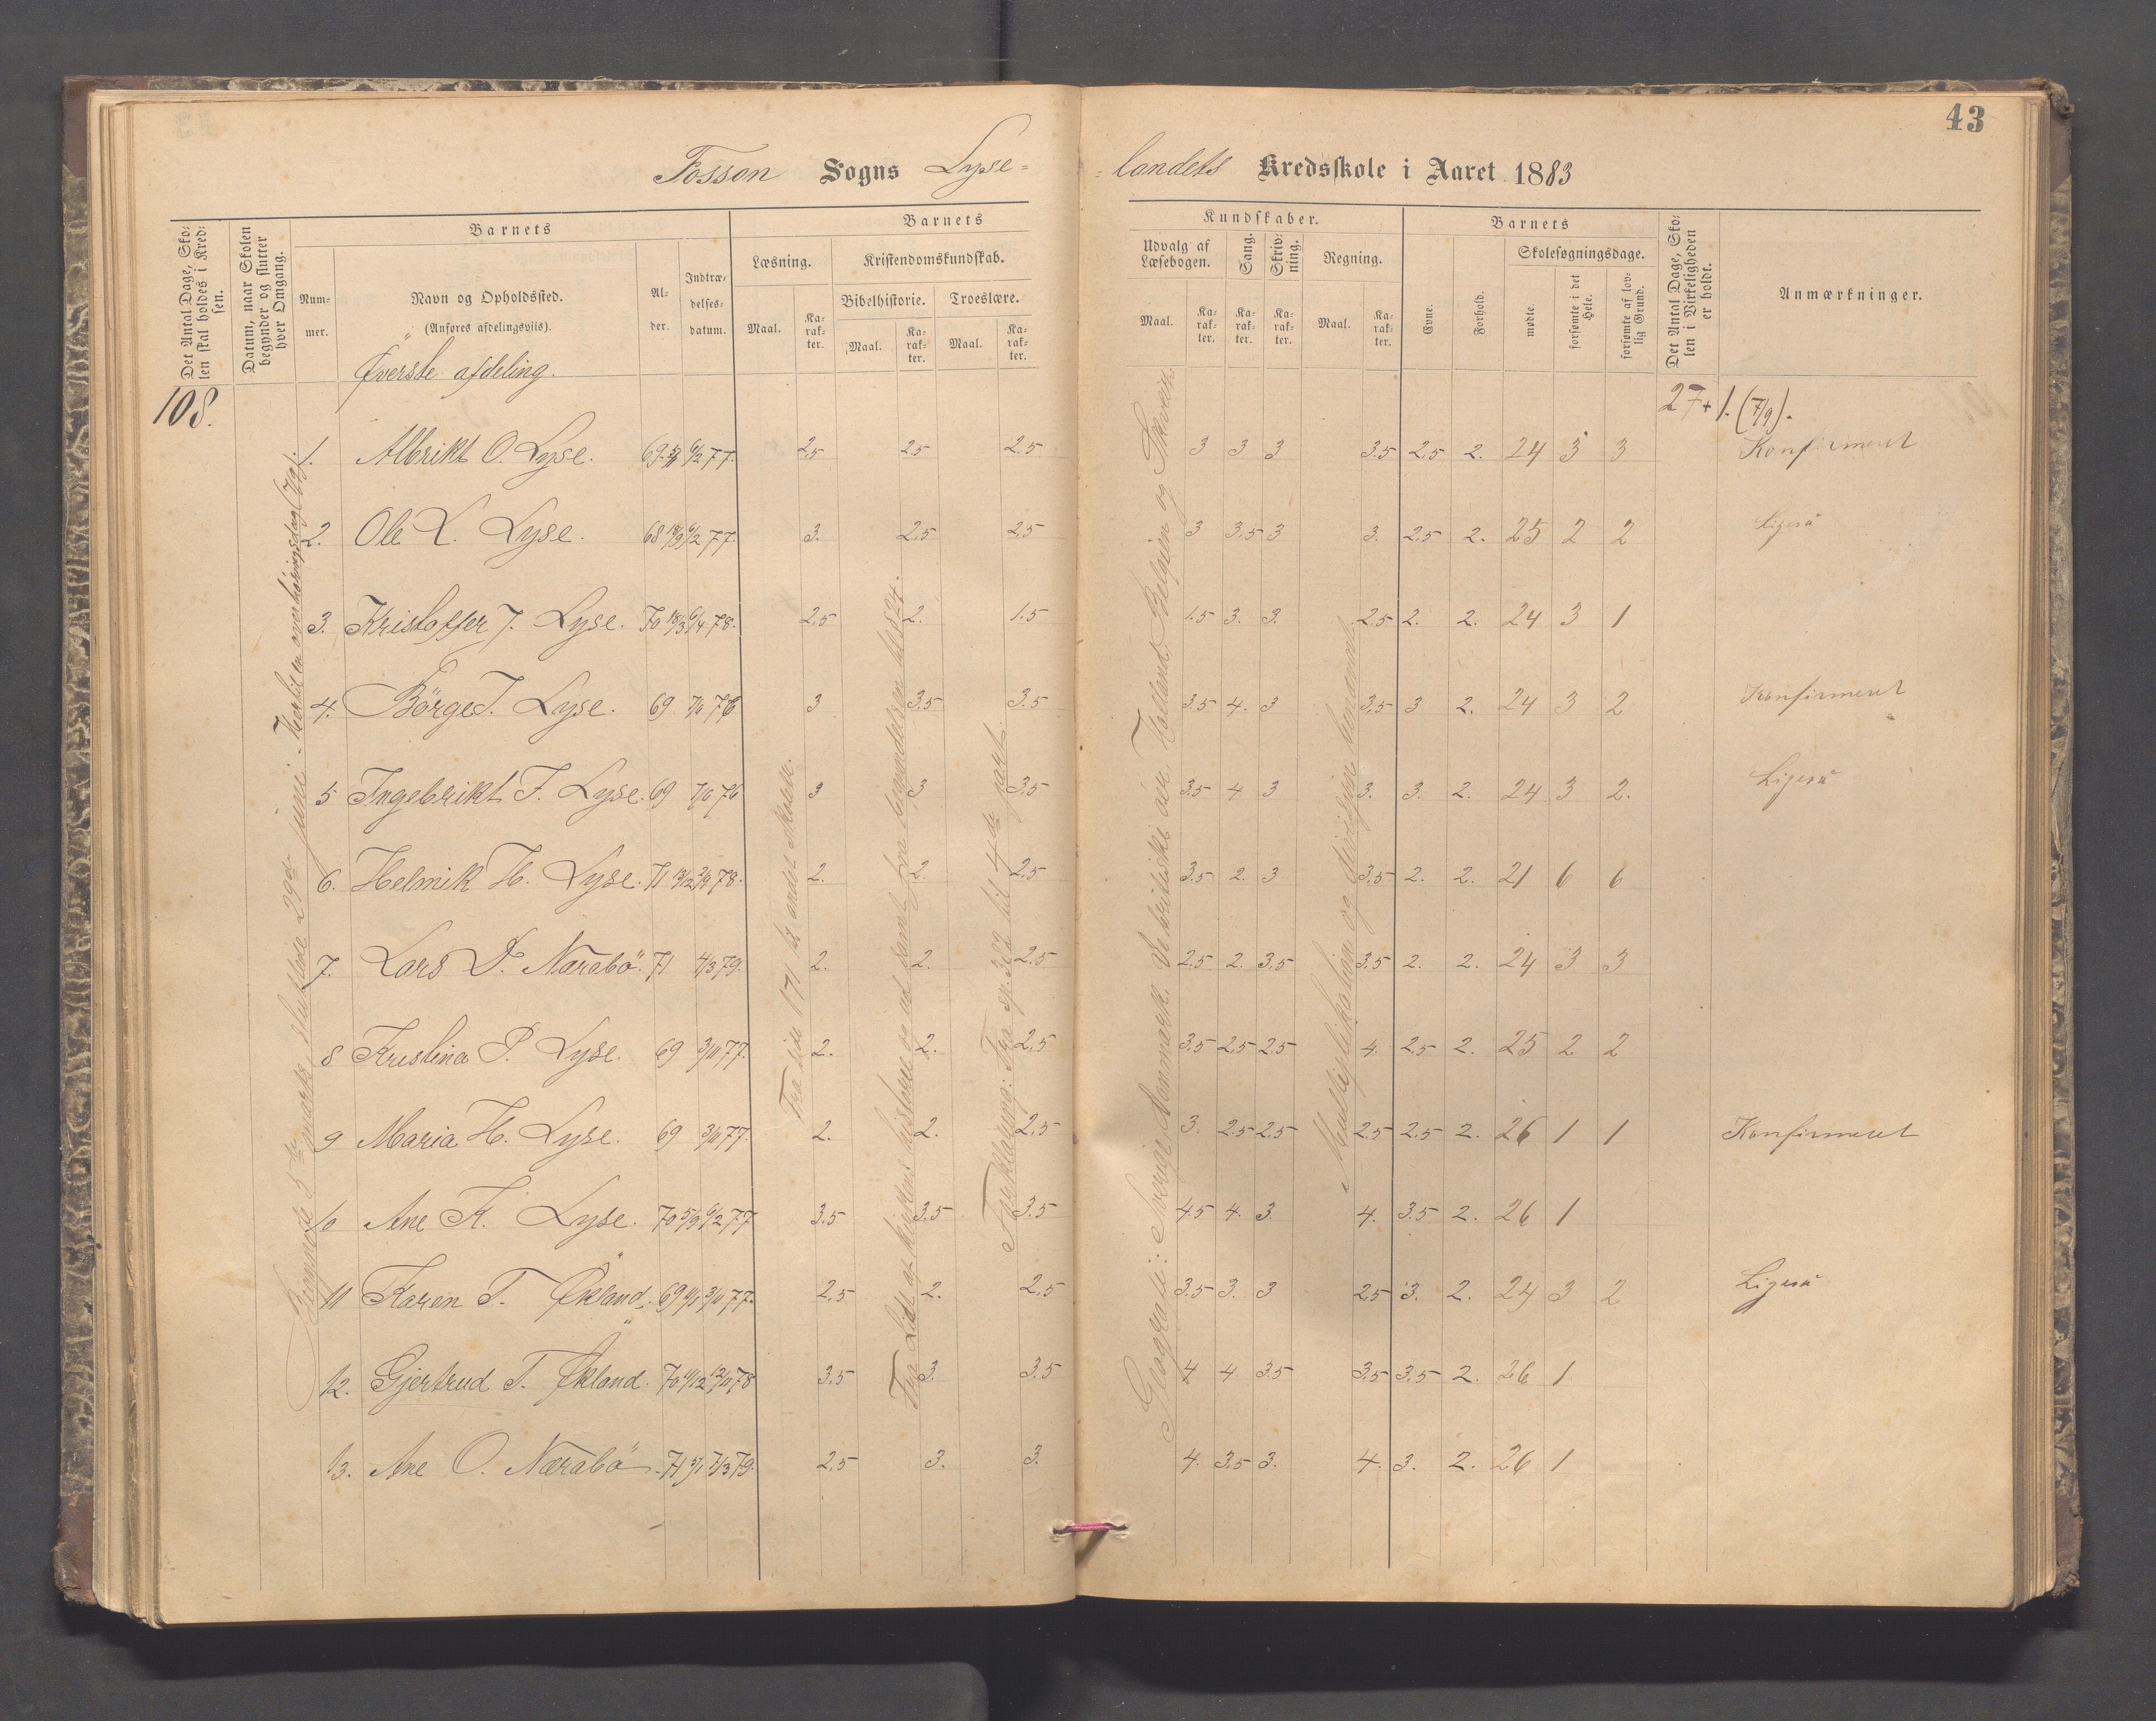 43
Fossan Sogns Lyse=
=landets Kredsskole i Aaret 1883
Det Antal Dage, Skolen skal holdes i Kredsen.
Datum, naar Skolen begynder og slutter hver Omgang.
Barnets
Nummer.
Navn og Opholdssted.
(Anføres afdelingsviis).
Alder.
Indtrædelsesdatum.
Barnets
Læsning.
Kristendomskundskab.
Bibelhistorie.
Troeslære.
Maal.
Karakter.
Maal.
Karakter.
Maal.
Karakter.
Kundskaber.
Udvalg af Læsebogen.
Sang.
Skrivning.
Regning.
Maal.
Karakter.
Karakter.
Karakter.
Maal.
Karakter.
Barnets
Evne.
Forhold.
Skolesøgningsdage.
mødte.
forsømte i det Hele.
forsømte af lovlig Grund.
Det Antal Dage, Skolen i Virkeligheden er holdt.
Anmærkninger.
Øverste afdeling.
108.
27+1. (7/9).
Begyndte 5te marts sluttede 29de juni. Hertil en overhøringsdag (7/9).
Fra side 171 til andet Skolen.
Fra Lidt af kirkens historie og ud samt fra forundelsen til 824.
Forklaring: Fra sp. 302 til 4de part.
Geografi: Sverige, Danmark. De britiske øer, Holland, Belgien og Schweiz.
Multiplikation og Division benævnt.
1. Albrikt O. Lyse. 69 6/2 77. 2.5 2.5 2.5 3 3 3 3.5 2.5 2. 24 3 3 Konfirmeret
2. Ole L. Lyse. 68 18/9 6/2 77. 3. 2.5 2.5 3 3.5 3 3. 2.5 2. 25 2 2 Ligeså
3. Kristoffer J. Lyse. 70 18/3 6/4 78. 2.5 2. 1.5 1.5 3. 3. 2.5 2. 2. 24 3 1
4. Börge T. Lyse. 69 7/6 76 3 3.5 3.5 3.5 4. 3 3.5 3 2. 24 3 2 Konfirmeret
5 Ingebrikt F. Lyse. 69 7/6 76 3 3 3.5 3.5 4 3 3. 3. 2. 24 3 2. Ligeså
6. Helmik H. Lyse. 71 13/2 2/9 78. 2. 2. 2.5 3.5 2. 3 3.5 2. 2. 21 6 6
7. Lars D. Nærabö. 71 4/3 79. 2. 2. 2.5 2.5 2. 3.5 3.5 2. 2. 24 3 3
8 Kristina P. Lyse. 69 3/11 77. 2. 2. 2.5 3.5 2.5 2.5 4. 2.5 2. 25 2 2
9 Maria H. Lyse. 69 3/11 77. 2. 2. 2.5 3. 2.5 2.5 2.5 2.5 2. 26 1 1 Konfirmeret
10 Ane K. Lyse. 70 5/9 6/2 77 3.5 3.5 3.5 4.5 4. 3. 4. 3.5 2. 26 1
11 Karen T. Økland. 69 6/1 3/11 77. 2.5 2. 2.5 3.5 3. 3 2.5 3. 2. 24 3 2 Ligeså
12. Gjertrud T. Økland. 70 11/12 12/11 78 3.5 3. 3.5 4 4. 3.5 3.5 3.5 2. 26 1
13. Ane O. Nærabö. 71 5/1 7/3 79. 2.5 3. 3. 4. 3.5 3. 4. 3. 2. 26 1